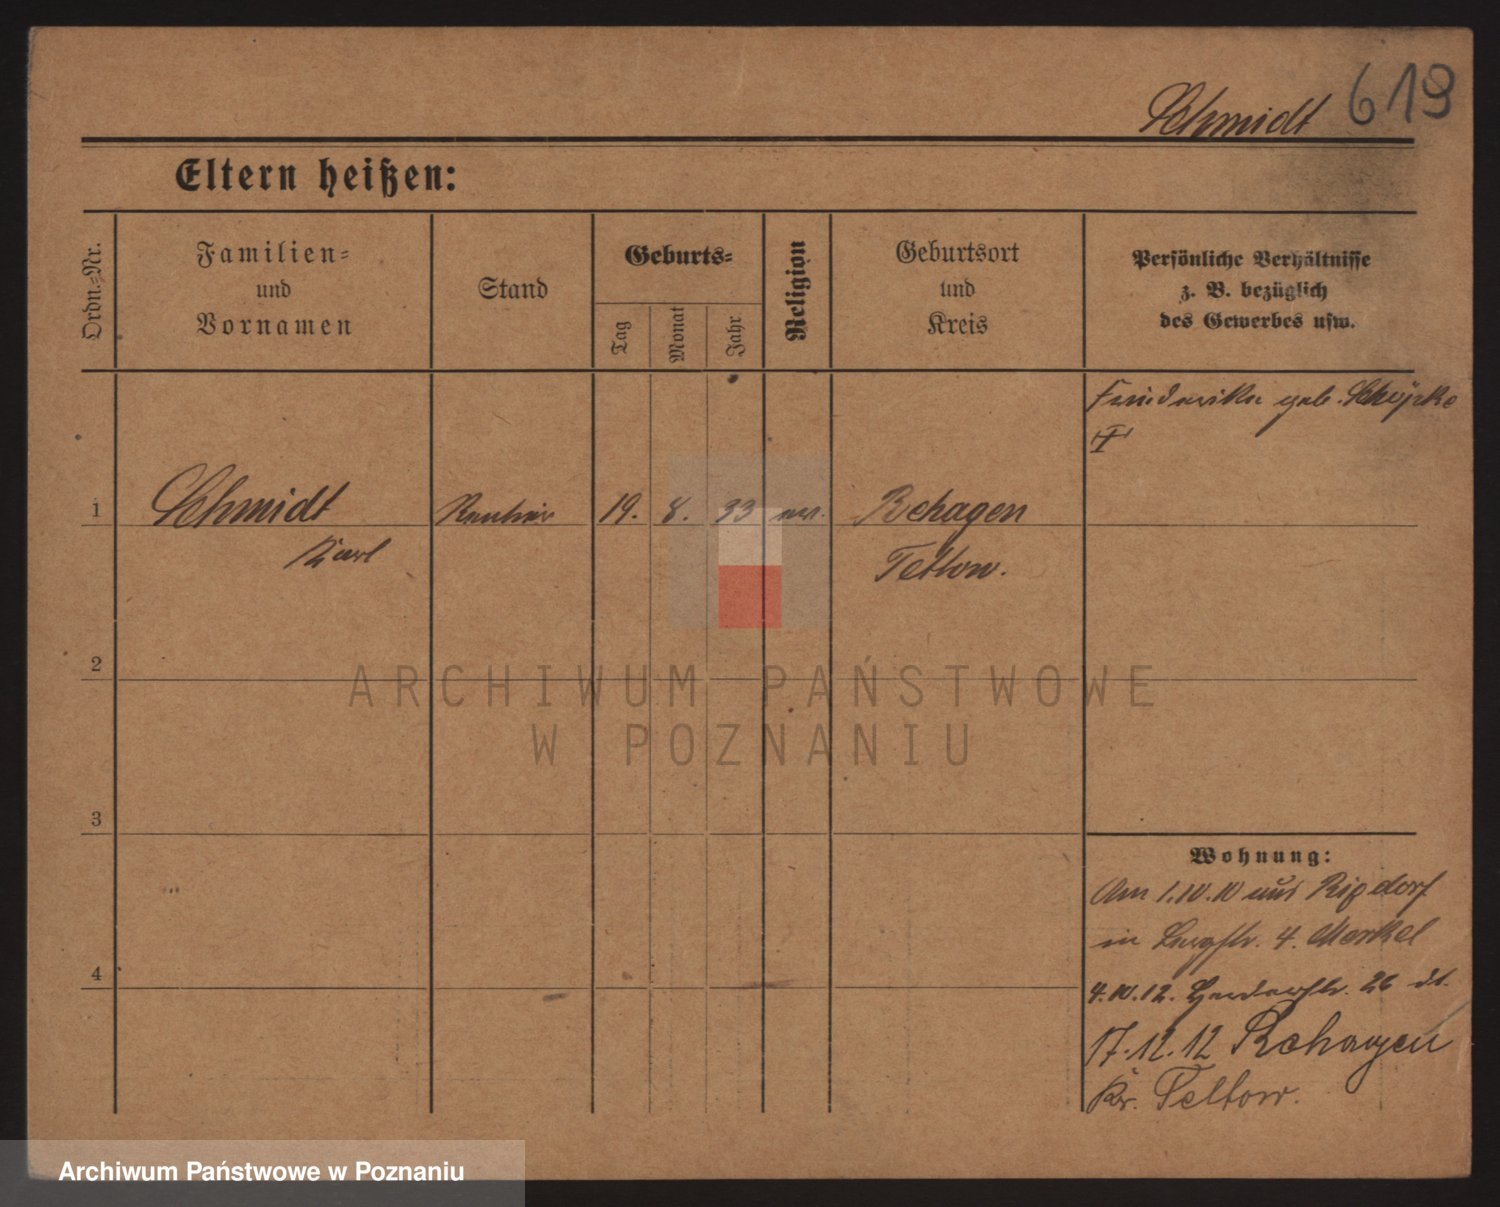 Schmidt 619
Eltern heißen:
Ordn.-Nr.
Familien-
und
Vornamen
Stand
Geburts-
Tag
Monat
Jahr
Religion
Geburtsort
und
Kreis
Persönliche Verhältnisse
z. B. bezüglich
des Gewerbes usw.
Friederike geb. Schöpke
1 Schmidt Rentier 19. 8. 33 ev. Rehagen
Karl Teltow.
2
3
4
Wohnung:
Am 1.10.10 aus Rixdorf
in 4. Merkel
4.10.12. Herderstr. 26 bt.
17.12.12 Rehagen
Kr. Teltow.
ARCHIWUM PAŃSTWOWE
W POZNANIU
Archiwum Państwowe w Poznaniu